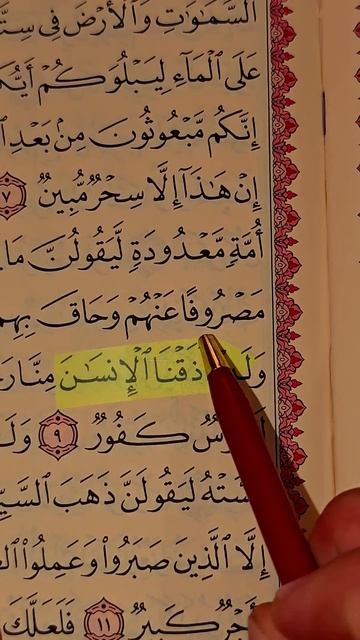 السَّمَٰوَٰتِ وَٱلْأَرْضَ فِى
عَلَى ٱلْمَآءِ لِيَبْلُوَكُمْ
إِنَّكُم مَّبْعُوثُونَ مِنۢ بَعْدِ
إِنْ هَٰذَآ إِلَّا سِحْرٌ مُّبِينٌ ٧
أُمَّةٍ مَّعْدُودَةٍ لَّيَقُولُنَّ
مَصْرُوفًا عَنْهُمْ وَحَاقَ بِهِم
أَذَقْنَا ٱلْإِنسَٰنَ مِنَّا
كَفُورٌ ٩
لَيَقُولَنَّ ذَهَبَ
إِلَّا ٱلَّذِينَ صَبَرُوا۟ وَعَمِلُوا۟
كَبِيرٌ ١١ فَلَعَلَّكَ